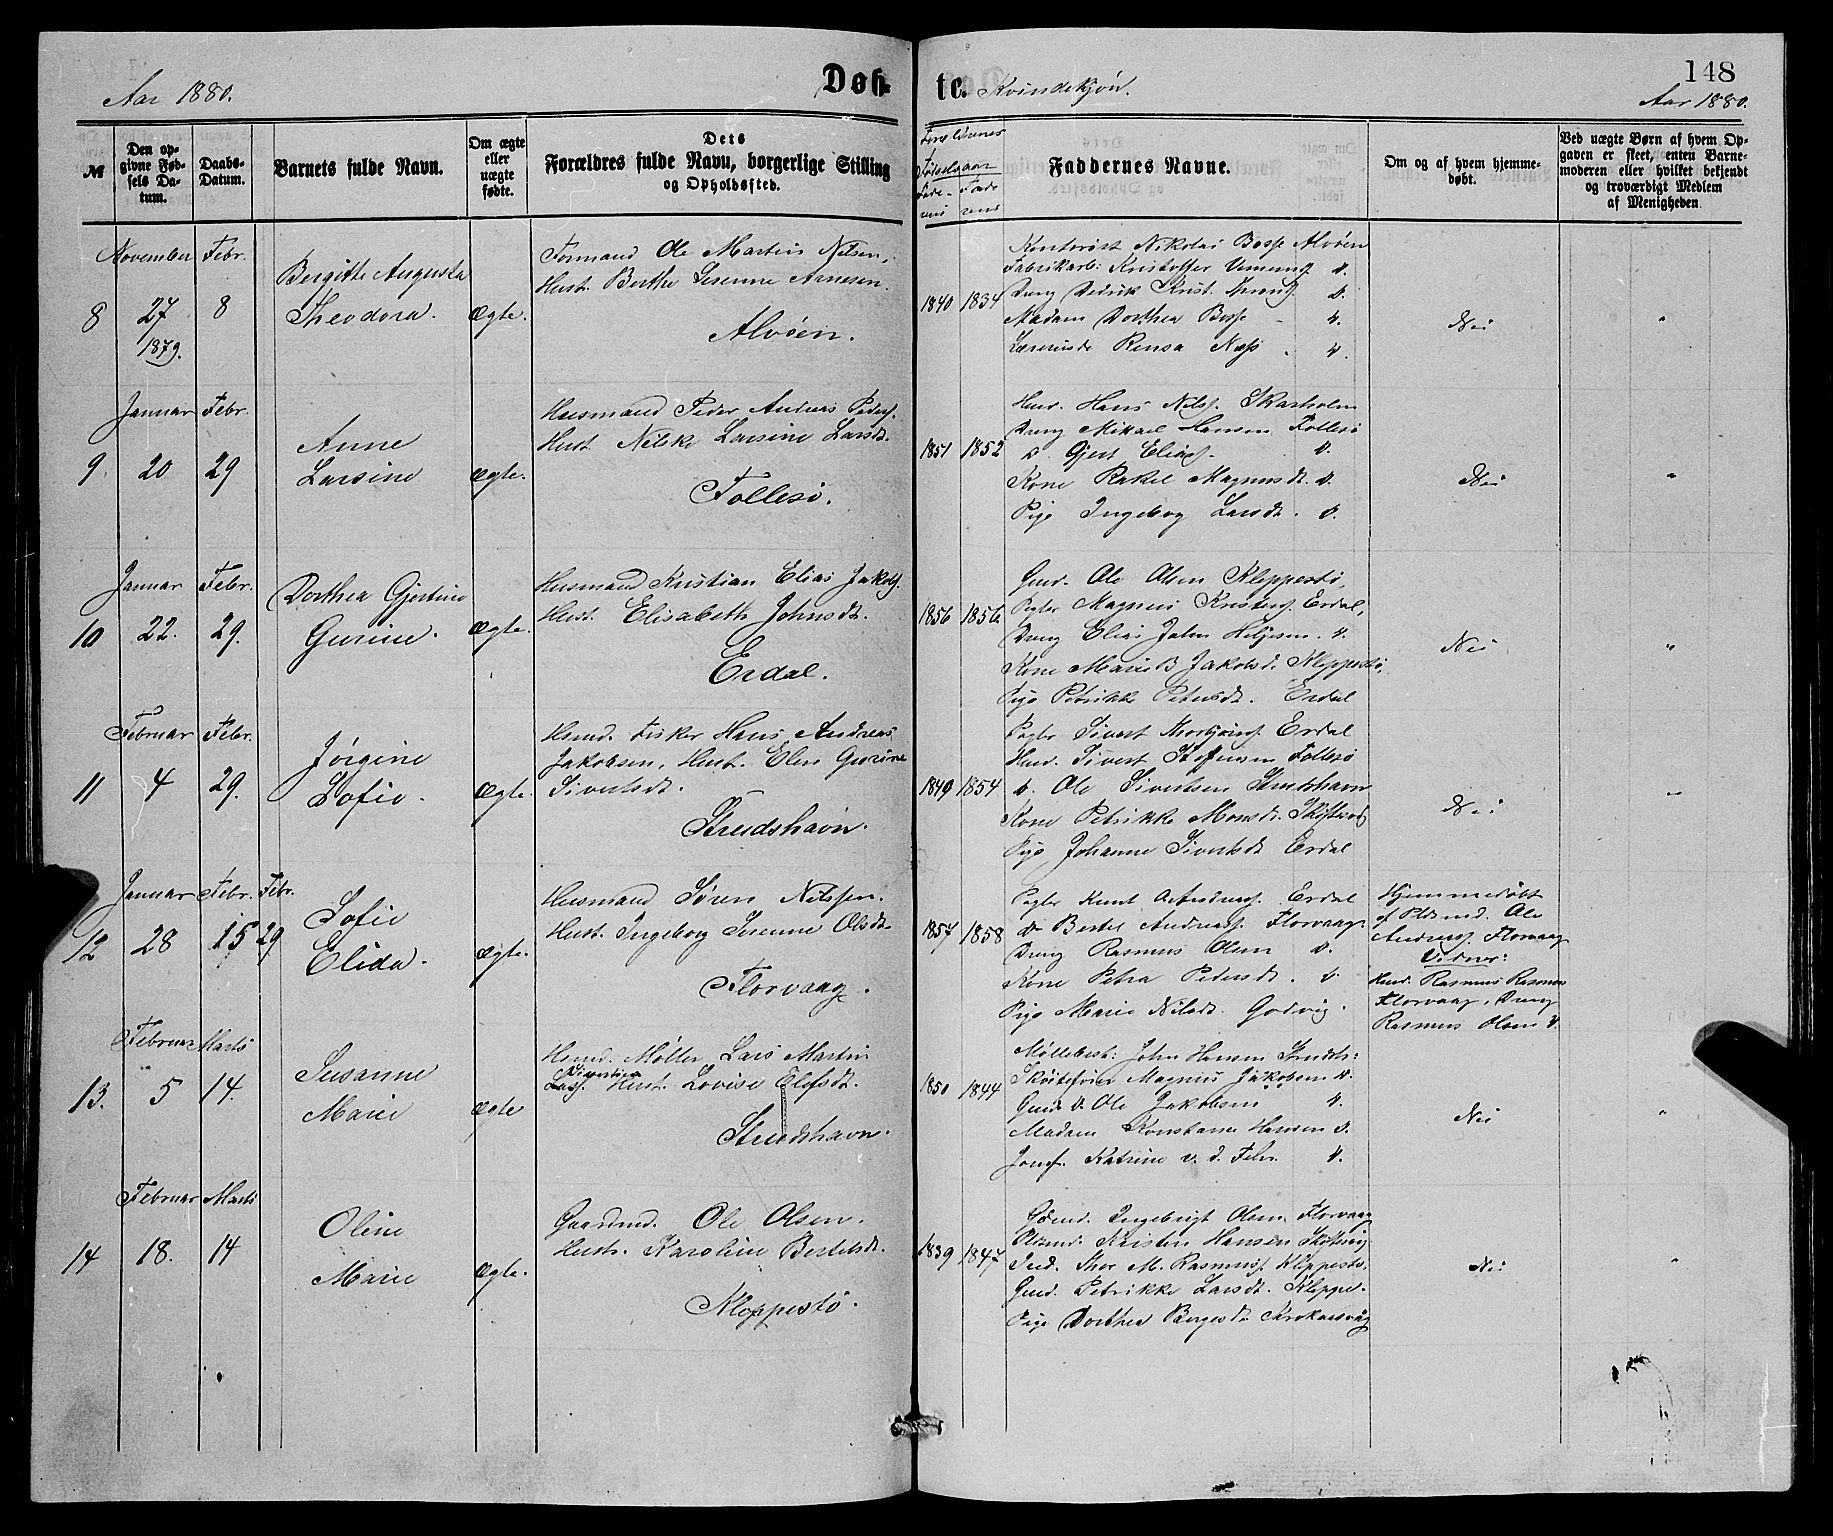 148
Aar 1880.
Døbte. Kvindekjön.
Aar 1880.
№
Den opgivne Fødsels Datum.
Daabs-Datum.
Barnets fulde Navn.
Om ægte eller uægte fødte.
Dets Forældres fulde Navn, borgerlige Stilling og Opholdssted.
Forældrenes Fødselsaar
Faderens
Faddernes Navne.
Om og af hvem hjemmedøbt.
Ved uægte Børn af hvem Opgaven er skeet, enten Barnemoderen eller hvilket bekjendt og troværdigt Medlem af Menigheden.
8
November
27
1879.
Febr.
8
Bergitte Augusta
Theodora.
Ægte.
Formand Ole Martin Nilsen,
Hust. Berthe Serenne Arnesen.
Alvöen.
1840 1834
Kontorist Nikolai Bosse Alvöen
Fabrikarb: Kristoffer d.
Dreng Didrik Krist. d.
Madam Dorthea Bosse d.
Lærerinde Rensa Næss d.
Nei
"
9
Januar
20
Febr.
29
Anne
Larsine
Ægte.
Husmand Peder Andreas Peders.
Hust. Nilske Larsine Larsdt.
Follesö.
1851 1852
Husm. Hans Nilss. Skarholm
Dreng Mikael Hansen Follesö
d. Gjert Elias. d.
Kone Rakel Magnusdt. d.
Pige Ingebog Larsdt. d.
Nei
"
10
Januar
22.
Febr.
29.
Dorthea Gjertine
Gurine.
Ægte.
Husmand Kristian Elias Jakobs.
Hust. Elisabeth Johnsdt.
Erdal.
1856 1856
Gmd. Ole Olsen Kleppestö,
Pegler Magnus Kristens. Erdal,
Dreng Elias John Hiljesen. d.
Kone Marie B Jakobsdt. Kleppestö,
Pige Petrikke Petersdt. Erdal
Nei
"
11
Februar
4
Febr.
29.
Jørgine
Sofie.
Ægte.
Husmd. Fisker Hans Andreas
Jakobsen, Hust. Elen Gurine
Sivertsdt.
Strudshavn.
1849 1854
Pegler Sivert Thorbjörns. Erdal
Husm. Sivert Follesö
d. Ole Sivertsen Strudshavn
Kone Petrikke Monsdt.
Pige Johanne Sivertsdt Erdal
Nei
"
12
Januar
28
Febr.
15
Febr.
29
Sofie
Elida.
Ægte.
Husmand Sören Nilssen.
Hust. Ingeborg Serenne Olsdt.
Florvaag.
1857 1858
Pegler Knut Anders. Erdal
d. Bertel Andreas. Florvaag.
Dreng Rasmus Olsen d.
Kone Petra Petersdt. d.
Pige Marie Nilsdt. Godvig.
Hjemmedöbt
af Pldsmd. Ole
Andreas. Florvaag
Vidner:
Husm. Rasmus Rasmus
Florvaag, Dreng
Rasmus Olsen d.
13.
Februar
5
Marts
14.
Susanne
Marie
Ægte
Husmd. Møller Lars Martin
Sivertsen
Lars. Hust. Lovise Elefsdt.
Strudshavn.
1850 1844
Møllebest: John Hansen Strudsh:
Sköitefører Magnus Jakobsen d.
Gmd. Ole Jakobsen d.
Madam Konstanse Hansen d.
Jomf. Katrine v. d. Fehr. d.
Nei
"
14
Februar
18.
Marts
14
Oline
Marie
Ægte.
Gaardmd. Ole Olsen.
Hustr. Karoline Bertelsdt.
Kleppestö.
1839 1847
Gdmd. Ingebrigt Olsen Florvaag
Pldsmd. Kristen Hansen
Thor M. Rasmuss. Kleppestö.
Gmd. Petrikke Larsdt. Kleppe.
Pige Dorthea Börgesdt.
Nei
"